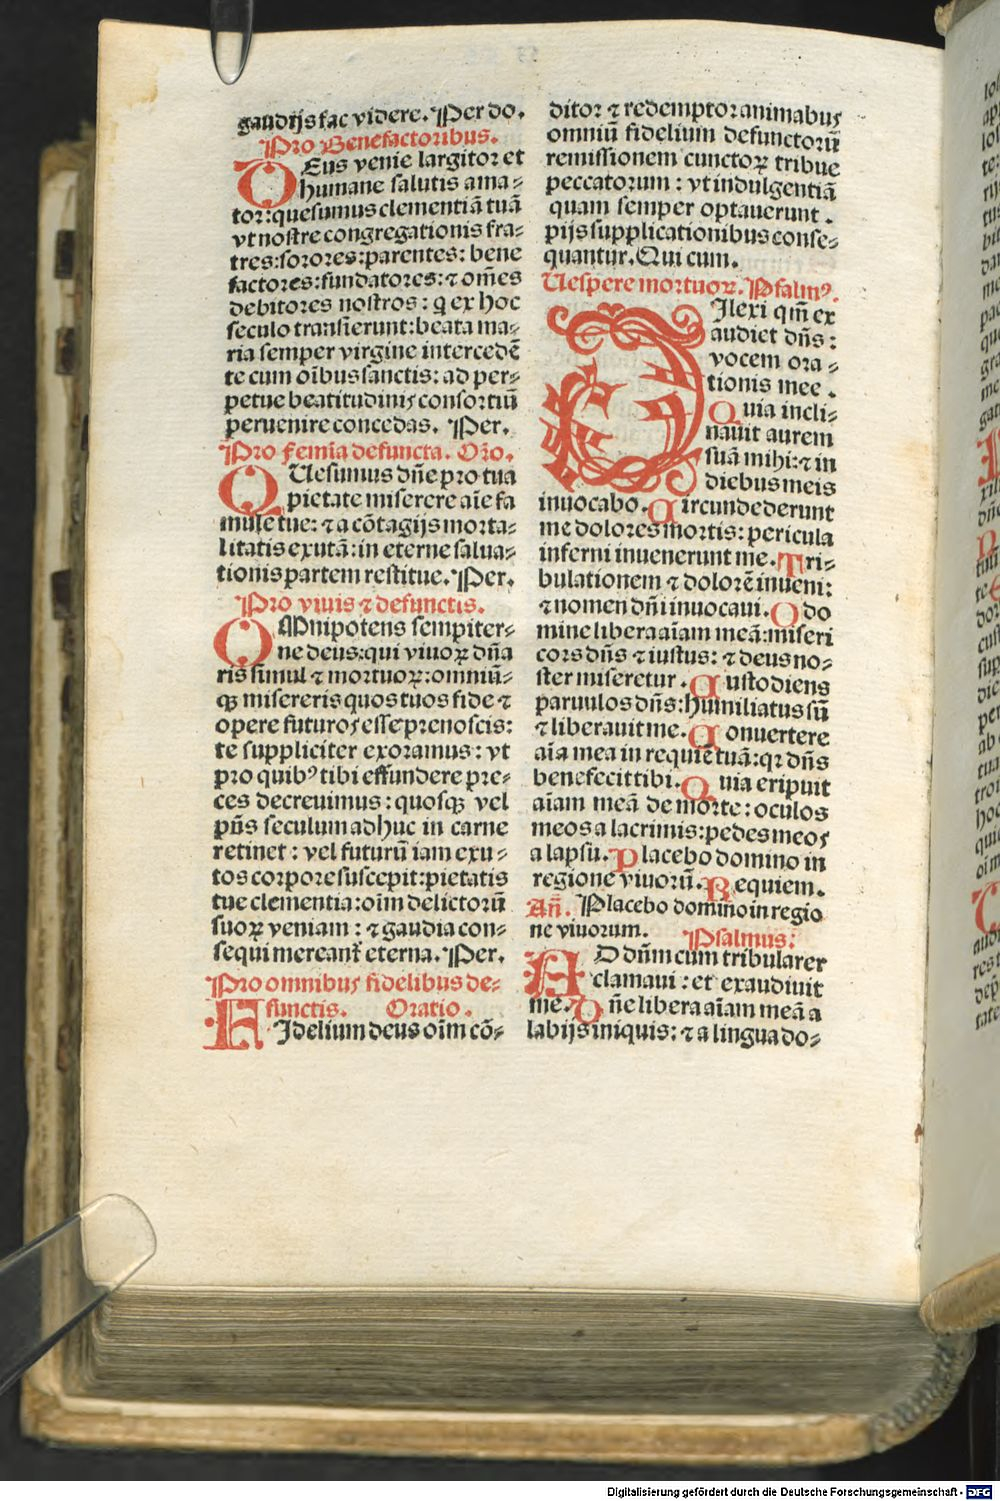 gaudijs fac videre. Per do.
Pro Benefactoribus.
DEus venie largitor et
humane salutis ama⸗
tor: quesumus clementiā tuā
vt nostre congregationis fra⸗
tres: sorores: parentes: bene
factores: fundatores: ⁊ om̄es
debitores nostros: q̄ ex hoc
seculo transierunt: beata ma⸗
ria semper virgine intercedē
te cum oībus sanctis: ad per⸗
petue beatitudinis consortiū
peruenire concedas. Per.
Pro femia defuncta. Oro.
QUesumus dn̄e pro tua
pietate miserere aīe fa
mule tue: ⁊ a cōtagijs morta⸗
litatis exutā: in eterne salua⸗
tionis partem restitue. Per.
Pro viuis ⁊ defunctis.
OMnipotens sempiter⸗
ne deus: qui viuoꝝ dn̄a
ris simul ⁊ mortuoꝝ: omniū⸗
qꝫ misereris quos tuos fide ⁊
opere futuros esse prenoscis:
te suppliciter exoramus: vt
pro quibꝰ tibi effundere pre⸗
ces decreuimus: quosqꝫ vel
pn̄s seculum adhuc in carne
retinet: vel futurū iam exu⸗
tos corpore suscepit: pietatis
tue clementia: oīm delictorū
suoꝝ veniam: ⁊ gaudia con⸗
sequi mereant᷑ eterna. Per.
Pro omnibus fidelibus de⸗
functis. Oratio.
FIdelium deus oīm cō⸗
ditor ⁊ redemptor animabus
omniū fidelium defunctorū
remissionem cunctoꝝ tribue
peccatorum: vt indulgentiā
quam semper optauerunt.
pijs supplicationibus conse⸗
quantur. Qui cum.
Uespere mortuoꝝ. Psalmꝰ.
DIlexi qm̄ ex
audiet dn̄s:
vocem ora⸗
tionis mee.
Quia incli⸗
nauit aurem
suā mihi: ⁊ in
diebus meis
inuocabo. Circundederunt
me dolores mortis: pericula
inferni inuenerunt me. Tri⸗
bulationem ⁊ dolorē inueni:
⁊ nomen dn̄i inuocaui. O do
mine libera aīam meā: miseri
cors dn̄s ⁊ iustus: ⁊ deus no⸗
ster miseretur. Custodiens
paruulos dn̄s: humiliatus sū
⁊ liberauit me. Conuertere
aīa mea in requiē tuā: qr dn̄s
benefecit tibi. Quia eripuit
aīam meā de morte: oculos
meos a lacrimis: pedes meos
a lapsu. Placebo domino in
regione viuorū. Requiem.
An̄. Placebo domino in regio
ne viuorum. Psalmus:
AD dn̄m cum tribularer
clamaui: et exaudiuit
me. Dn̄e libera aīam meā a
labijs iniquis: ⁊ a lingua do⸗
Digitalisierung gefördert durch die Deutsche Forschungsgemeinschaft - DFG